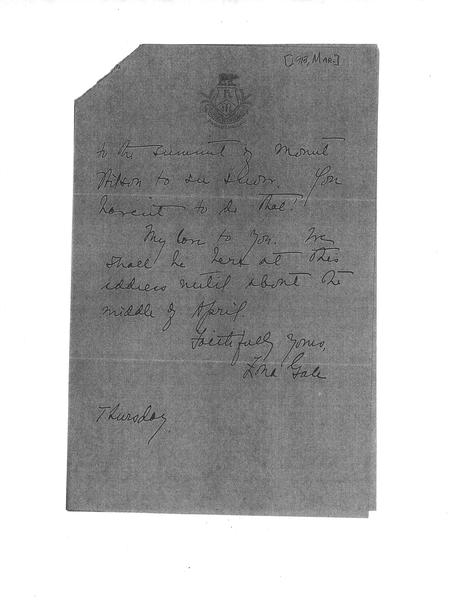 [1918, Mar.]
to the summit of Mount
Wilson to see snow. You
haven't to do that!
My love to you. We
shall be here at this
address until about the
middle of April.
Faithfully yours,
Zona Gale
Thursday.